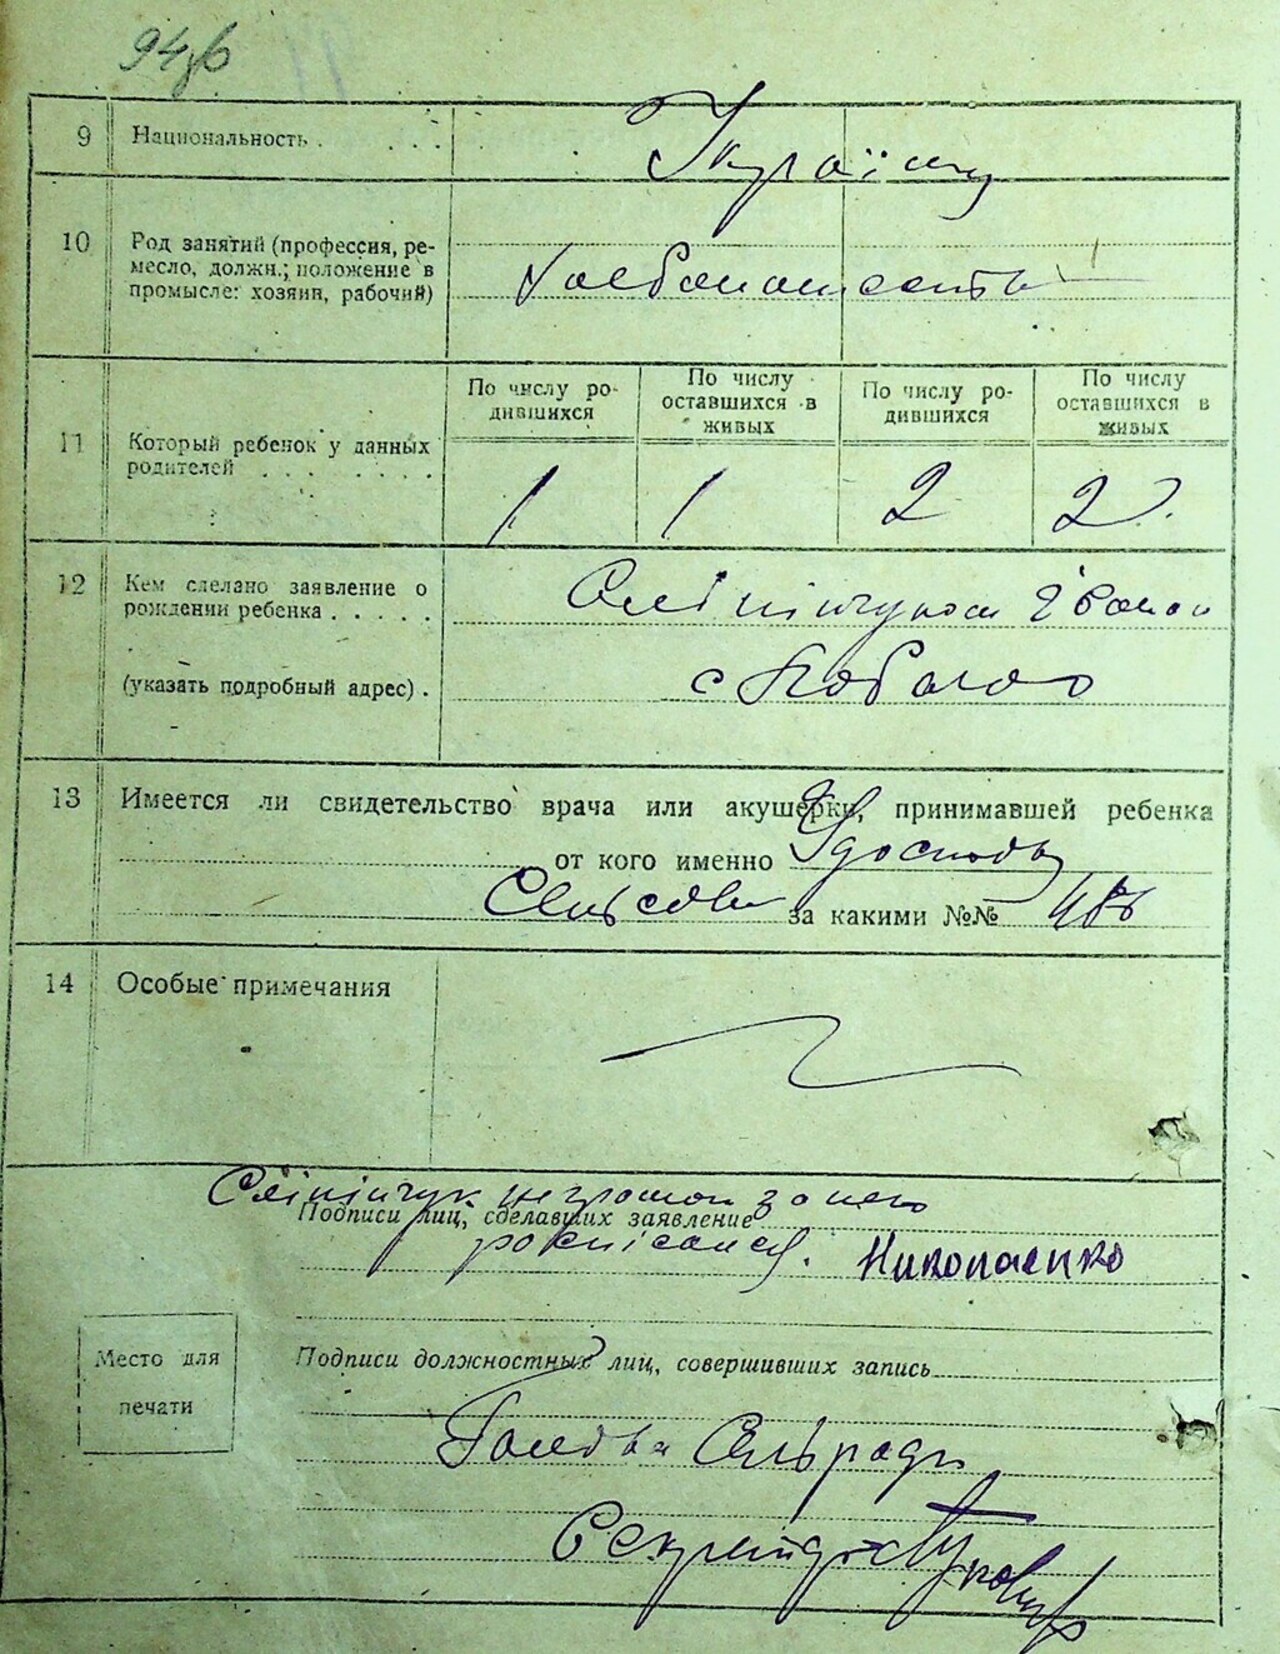 94зв
9 Национальность . . . .
Україну
10 Род занятий (профессия, ре-
месло, должн.; положение в
промысле: хозяин, рабочий)
По числу ро-
дившихся
По числу
оставшихся в
живых
По числу ро-
дившихся
По числу
оставшихся в
живых
11 Который ребенок у данных
родителей . . . . . . .
1 1 2 2.
12 Кем сделано заявление о
рождении ребенка . . . . .
(указать подробный адрес) .
с
13 Имеется ли свидетельство врача или акушерки, принимавшей ребенка
от кого именно
за какими №№
14 Особые примечания
Сліпінчук неграмот за него
Подписи лиц, сделавших заявление
росписался. Николаенко
Место для
печати
Подписи должностных лиц, совершивших запись
Голова Сільради
Секретар